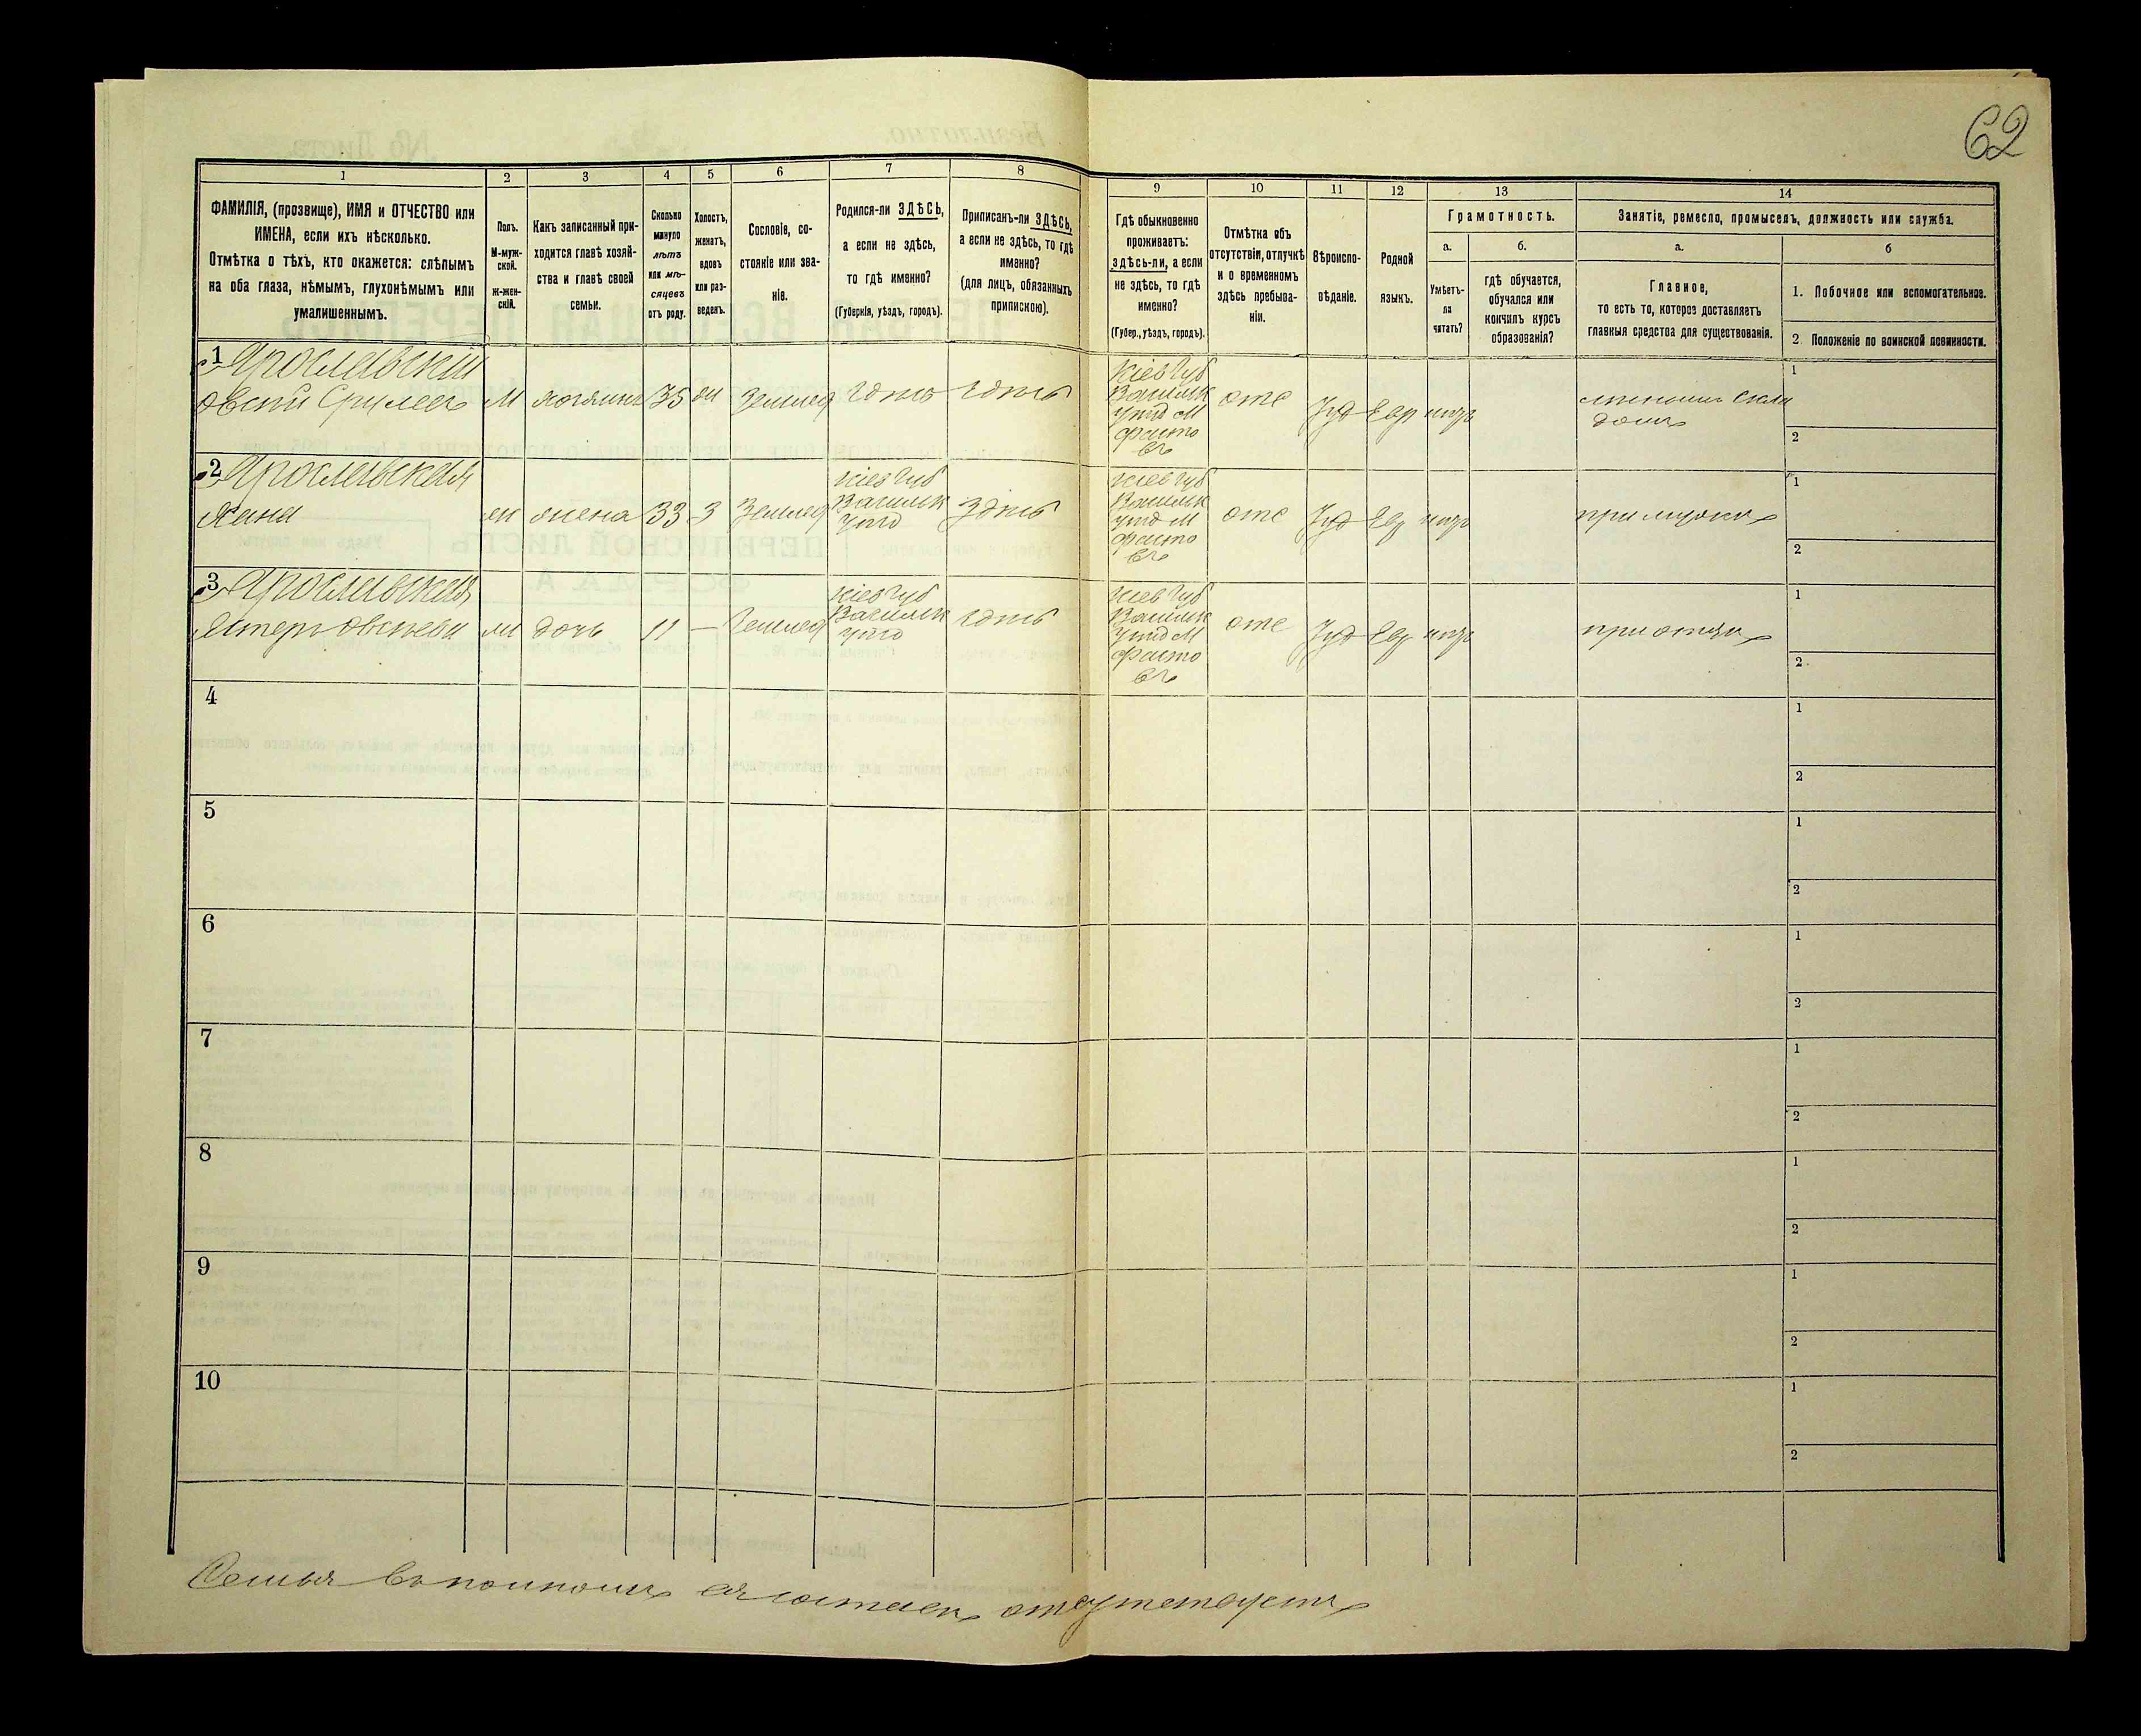 62
1 2 3 4 5 6 7 8 9 10 11 12 13 14
ФАМИЛІЯ, (прозвище), ИМЯ и ОТЧЕСТВО или
ИМЕНА, если ихъ нѣсколько.
Отмѣтка о тѣхъ, кто окажется: слѣпымъ
на оба глаза, нѣмымъ, глухонѣмымъ или
умалишеннымъ.
Полъ.
М-муж-
ской.
ж-жен-
скій.
Какъ записанный при-
ходится главѣ хозяй-
ства и главѣ своей
семьи.
Сколько
минуло
лѣтъ
или мѣ-
сяцевъ
отъ роду.
Холостъ,
женатъ,
вдовъ
или раз-
веденъ.
Сословіе, со-
стояніе или зва-
ніе.
Родился-ли ЗДѢСЬ,
а если не здѣсь,
то гдѣ именно?
(Губернія, уѣздъ, городъ).
Приписанъ-ли ЗДѢСЬ,
а если не здѣсь, то гдѣ
именно?
(для лицъ, обязанныхъ
припискою).
Гдѣ обыкновенно
проживаетъ:
здѣсь-ли, а если
не здѣсь, то гдѣ
именно?
(Губер., уѣздъ, городъ).
Отмѣтка объ
отсутствіи, отлучкѣ
и о временномъ
здѣсь пребыва-
ніи.
Вѣроиспо-
вѣданіе.
Родной
языкъ.
Грамотность.
а.
Умѣетъ-
ли
читать?
б.
гдѣ обучается,
обучался или
кончилъ курсъ
образованія?
Занятіе, ремесло, промыселъ, должность или служба.
а.
Главное,
то есть то, которое доставляетъ
главныя средства для существованія.
б
1. Побочное или вспомогательное.
2. Положеніе по воинской повинности.
1 Ярославскій
Овсѣй Срулевъ М хозяинъ 35 Землед здѣсь здѣсь
Кіев Губ
Васильк
уѣзд М
Фасто
въ
отс Іуд Евр
1
2
2 Ярославская
Хана ж жена 33 З Землед
Кіев Губ
Васильк
уѣзд
Здѣсь
Кіев Губ
Васильк
уѣзд М
Фасто
въ
отс Іуд Евр при мужѣ
1
2
3 Ярославская
Эстеръ Овсѣева ж дочь 11 — Землед
Кіев Губ
Васильк
уѣзд
здѣсь
Кіев Губ
Васильк
уѣзд М
Фасто
въ
отс Іуд Евр при отцѣ
1
2
4
1
2
5
1
2
6
1
2
7
1
2
8
1
2
9
1
2
10
1
2
Семья въ полномъ ея составѣ отсутствуетъ